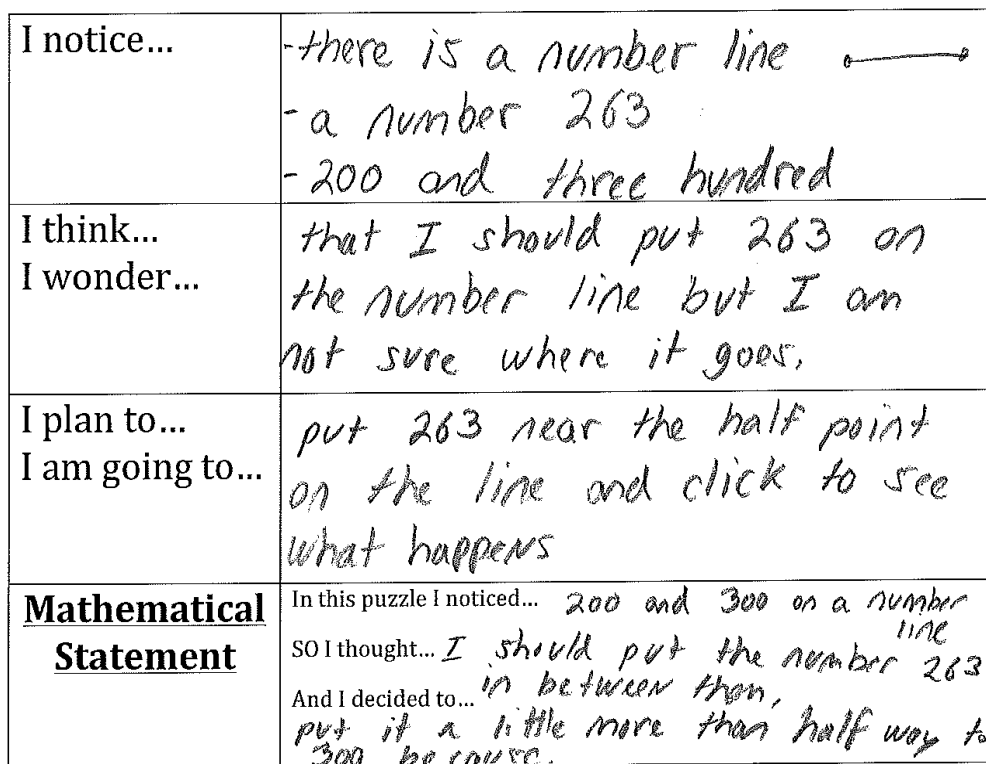 I notice...
-there is a number line
-a number 263
-200 and three hundred
I think...
I wonder...
that I should put 263 on
the number line but I am
not sure where it goes.
I plan to...
I am going to...
put 263 near the half point
on the line and click to see
what happens
Mathematical
Statement
In this puzzle I noticed... 200 and 300 on a number
line
SO I thought... I should put the number 263
in between them,
And I decided to...
put it a little more than half way to
300 because.